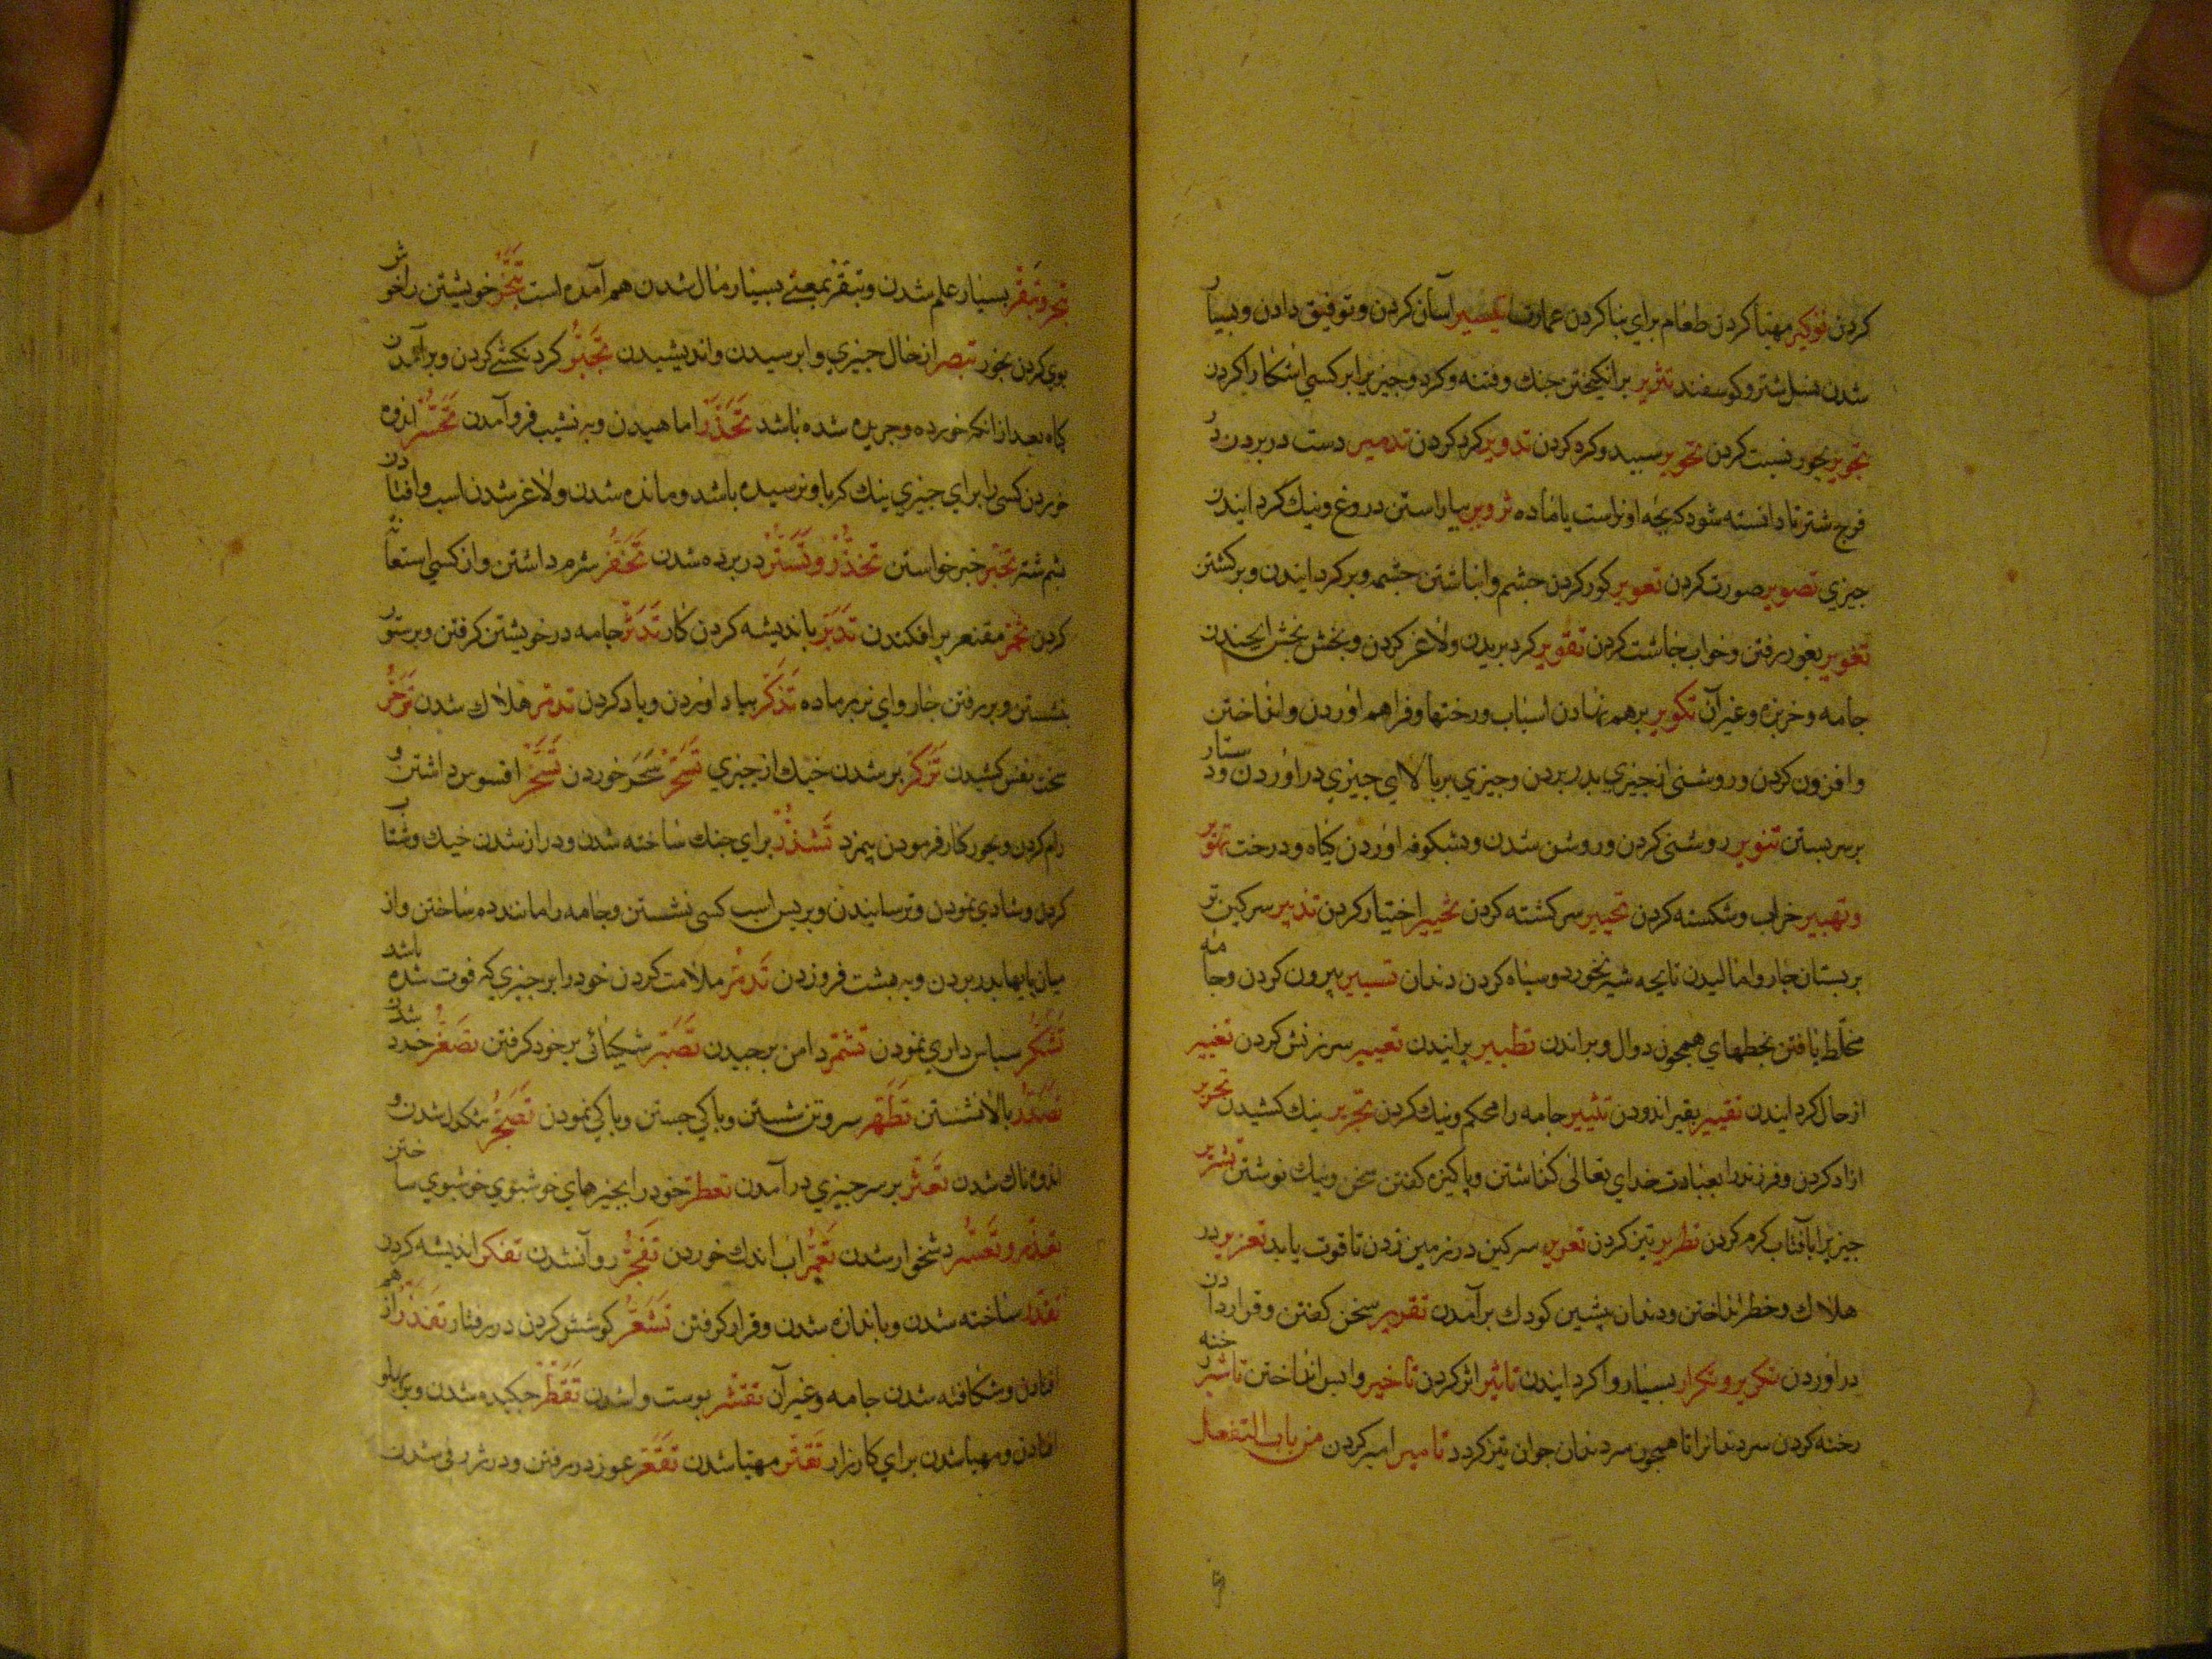 كردن توكير مهيا كردن طعام براي بنا كردن عمارت تيسير آسان كردن و توفيق دادن و بسيار
شدن نسل شتر و كوسفند تثرير برانكيختن جنك و فتنه و كرد و چيزيرا بر كسي اشكارا كردن
تجوير بجور نسبت كردن تحوير سبيد و كرد كردن تدوير كرد كردن تدمير دست در بردن در
فرج شتر تا دانسته شود كه بچه او نراست يا ماده تزوير بياراستن دروغ و نيك كردانيدن
جيزي تصوير صورت كردن تعوير كور كردن جشم و انباشتن جشمه و بر كردانيدن و بركشتن
تغوير بغور رفتن و خواب جاشت كردن تقوير كرد بريدن و لاغر كردن و بخش بخش
جامه و خربزه و غير آن تكوير بر هم نهادن اسباب و رختها و فراهم اوردن و انداختن
و افزون كردن و روشنى از جيزي بدر بردن و جيزي بر بالاي جيزي در اوردن و دستار
بر سر بستن تنوير روشنى كردن و روشن شدن و شكوفه اوردن كياه و درخت تهوير
و تهيير خراب و شكسته كردن تحيير سر كشته كردن تخيير اختيار كردن تديير سركين تو
بر بستان جاروا ماليدن تا بچه شير نخورد و سياه كردن دندان تسيير بيرون كردن و جامه
مخطط بافتن بخطهاي همچون دوال و براندن تطيير برانيدن تعيير سرزنش كردن تغيير
از حال كردانيدن تقيير بقير اندودن تنيير جامه را محكم و نيك كردن تجرير نيك كشيدن تحرير
ازاد كردن و فرزند را بعبادت خداي تعالى كماشتن و پاكيزه كفتن سخن و نيك نوشتن تشرير
جيزيرا بآفتاب كرم كردن تطرير تيز كردن تعرير سركين در زمين زدن تا قوت يابد تغرير در
هلاك و خطر انداختن و دندان پيشين كودك برآمدن تقرير سخن كفتن و قرار دادن
در اوردن تكرير و تكرار بسيار واكردانيدن تاثير اثر كردن تاخير وابس انداختن تاشير
رخنه كردن سر دندانرا تا همچون سر دندان جوان تيز كردد تامير امير كردن من باب التفعل
تبحر و تبقر بسيار علم شدن و تبقر بمعنى بسيار مال شدن هم آمده است تبخر خويشتن را خوش
بوي كردن بخور تبصر از حال جيزي وابرسيدن و انديشيدن تجبر كردنكشى كردن و برآمدن
كياه بعد از انكه خورده و چريده شده باشد تحدر اماهيدن و به نشيب فرو آمدن تحسر اندوه
خوردن كسى را براي جيزي نيك كه باو نرسيده باشد و مانده شدن و لاغر شدن اسب و افتادن
پشم شتر تخبر خبر خواستن تخدر و تستر در برده شدن تخفر شرم داشتن و از كسي استعانت
كردن تخمر مقنعه بر افكندن تدبر بانديشه كردن كار تدثر جامه در خويشتن كرفتن و بر ستور
نشستن و بر رفتن جارواي نر بر ماده تذكر بياد اوردن و ياد كردن تدمر هلاك شدن تزخر
سخت نفس كشيدن تزكر پر شدن خيك از جيزي تسحر سحر خوردن تسخر افسوس داشتن و
رام كردن و بجور كار فرمودن بيمزد تشذر براي جنك ساخته شدن و دراز شدن خيك و شتاب
كردن و شادي نمودن و ترسانيدن و بر پس اسب كسى نشستن و جامه را مانند ده ساختن و از
ميان پايها بدر بردن و به پشت فرو زدن تذمر ملامت كردن خود را بر جيزي كه فوت شده باشد
تشكر سباس داري نمودن تشمر دامن برجيدن تصبر شكيبائى بر خود كرفتن تصغر خرد شدن
تصدر بالا نشستن تطهر سر و تن شستن و پاكي جستن و پاكي نمودن تضجر تنكدل شدن و
اندوه ناك شدن تعثر بر سر جيزي در آمدن تعطر خود را بجيزهاي خوشبوي خوشبوي ساختن
تعذر و تعسر دشخوار شدن تغمر اب اندك خوردن تفجر روان شدن تفكر انديشه كردن
تقدر ساخته شدن و باندازه شدن و قرار كرفتن تشعر كوشش كردن در رفتار از هم
افتادن و شكافته شدن جامه و غير آن تقشر بوست واشدن تقطر جكيده شدن و بر پهلو
افتادن و مهيا شدن براي كارزار تقتر مهيا شدن تقعر بغور در رفتن و در ژرفى شدن